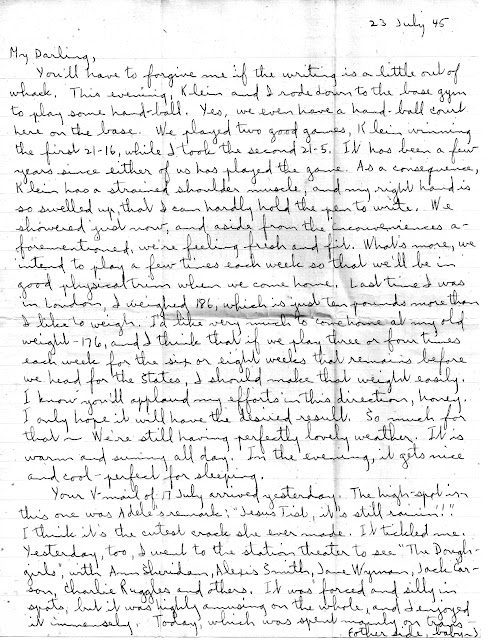 23 July 45
My Darling,
You'll have to forgive me if the writing is a little out of
whack. This evening, Klein and I rode down to the base gym
to play some hand-ball. Yes, we even have a hand-ball court
here on the base. We played two good games, Klein winning
the first 21-16, while I took the second 21-5. It has been a few
years since either of us has played the game. As a consequence,
Klein has a strained shoulder muscle, and my right hand is
so swelled up, that I can hardly hold the pen to write. We
showered just now, and aside from the inconveniences a-
forementioned, we're feeling fresh and fit. What's more, we
intend to play a few times each week so that we'll be in
good physical trim when we come home. Last time I was
in London, I weighed 186, which is just ten pounds more than
I like to weigh. I'd like very much to come home at my old
weight-176, and I think that if we play three or four times
each week for the six or eight weeks that remains before
we head for the States, I should make that weight easily.
I know you'll applaud my efforts in this direction, honey.
I only hope it will have the desired result. So much for
that — We're still having perfectly lovely weather. It is
warm and sunny all day. In the evening, it gets nice
and cool-perfect for sleeping.
Your V-mail of 17 July arrived yesterday. The high-spot in
this one was Adele's remark: "Jesus Tist, it's still rainin'!"
I think it's the cutest crack she ever made. It tickled me.
Yesterday, too, I went to the station theater to see "The Dough-
girls", with Ann Sheridan, Alexis Smith, Jane Wyman, Jack Car-
son, Charlie Ruggles and others. It was forced and silly in
spots, but it was highly amusing on the whole, and I enjoyed
it immensely. Today, which was spent mainly on trans-
(other side, baby)